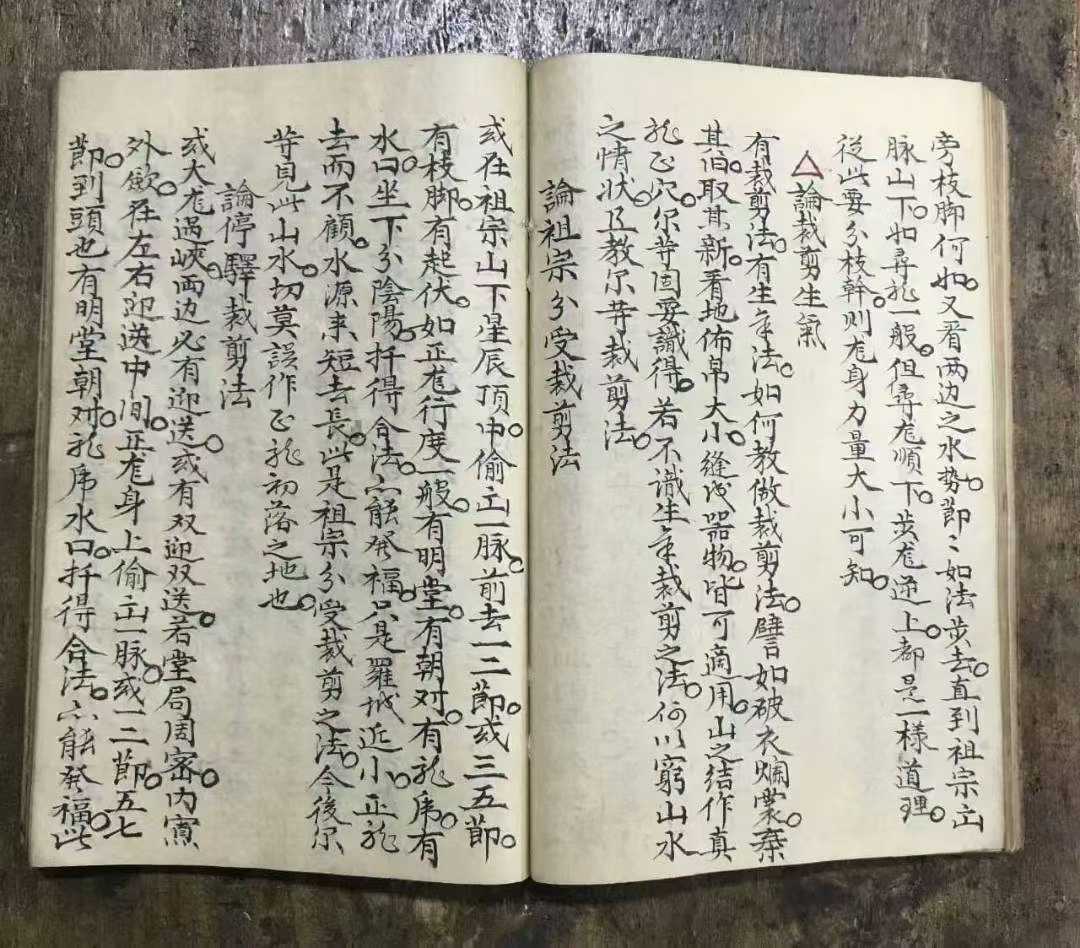 旁枝脚何如。又看两边之水势。節〻如法步去。直到祖宗出
脉山下。如尋龙一般。但尋龙順下。步龙逆上。都是一樣道理。
從此要分枝幹。则龙身力量大小可知。
△論裁剪生氣
有裁剪法。有生气法。如何教做裁剪法。譬如破衣爛裳。棄
其旧。取其新。看地佈帛大小。縫成器物。皆可適用。山之結作真
龙正穴。尔等固要識得。若不識生气裁剪之法。何以窮山水
之情状。且教尔等裁剪法。
論祖宗分受裁剪法
或在祖宗山下星辰頂中。偷出一脉。前去一二節。或三五節。
有枝脚。有起伏。如正龙行度一般。有明堂。有朝对。有龙虎。有
水口。坐下分陰陽。扦得合法。亦能發福。只是羅城近小。正龙
去而不顧。水源来短去長。此是祖宗分受裁剪之法。今後尔
等見此山水。切莫誤作正龙初落之地也。
論停驛裁剪法
或大龙過峽。两边必有迎送。或有双迎双送。若堂局周密。内寬
外歛。在左右迎送中间。正龙身上偷出一脉。或一二節。五七
節。到頭也有明堂朝对。龙虎水口。扦得合法。亦能發福。此